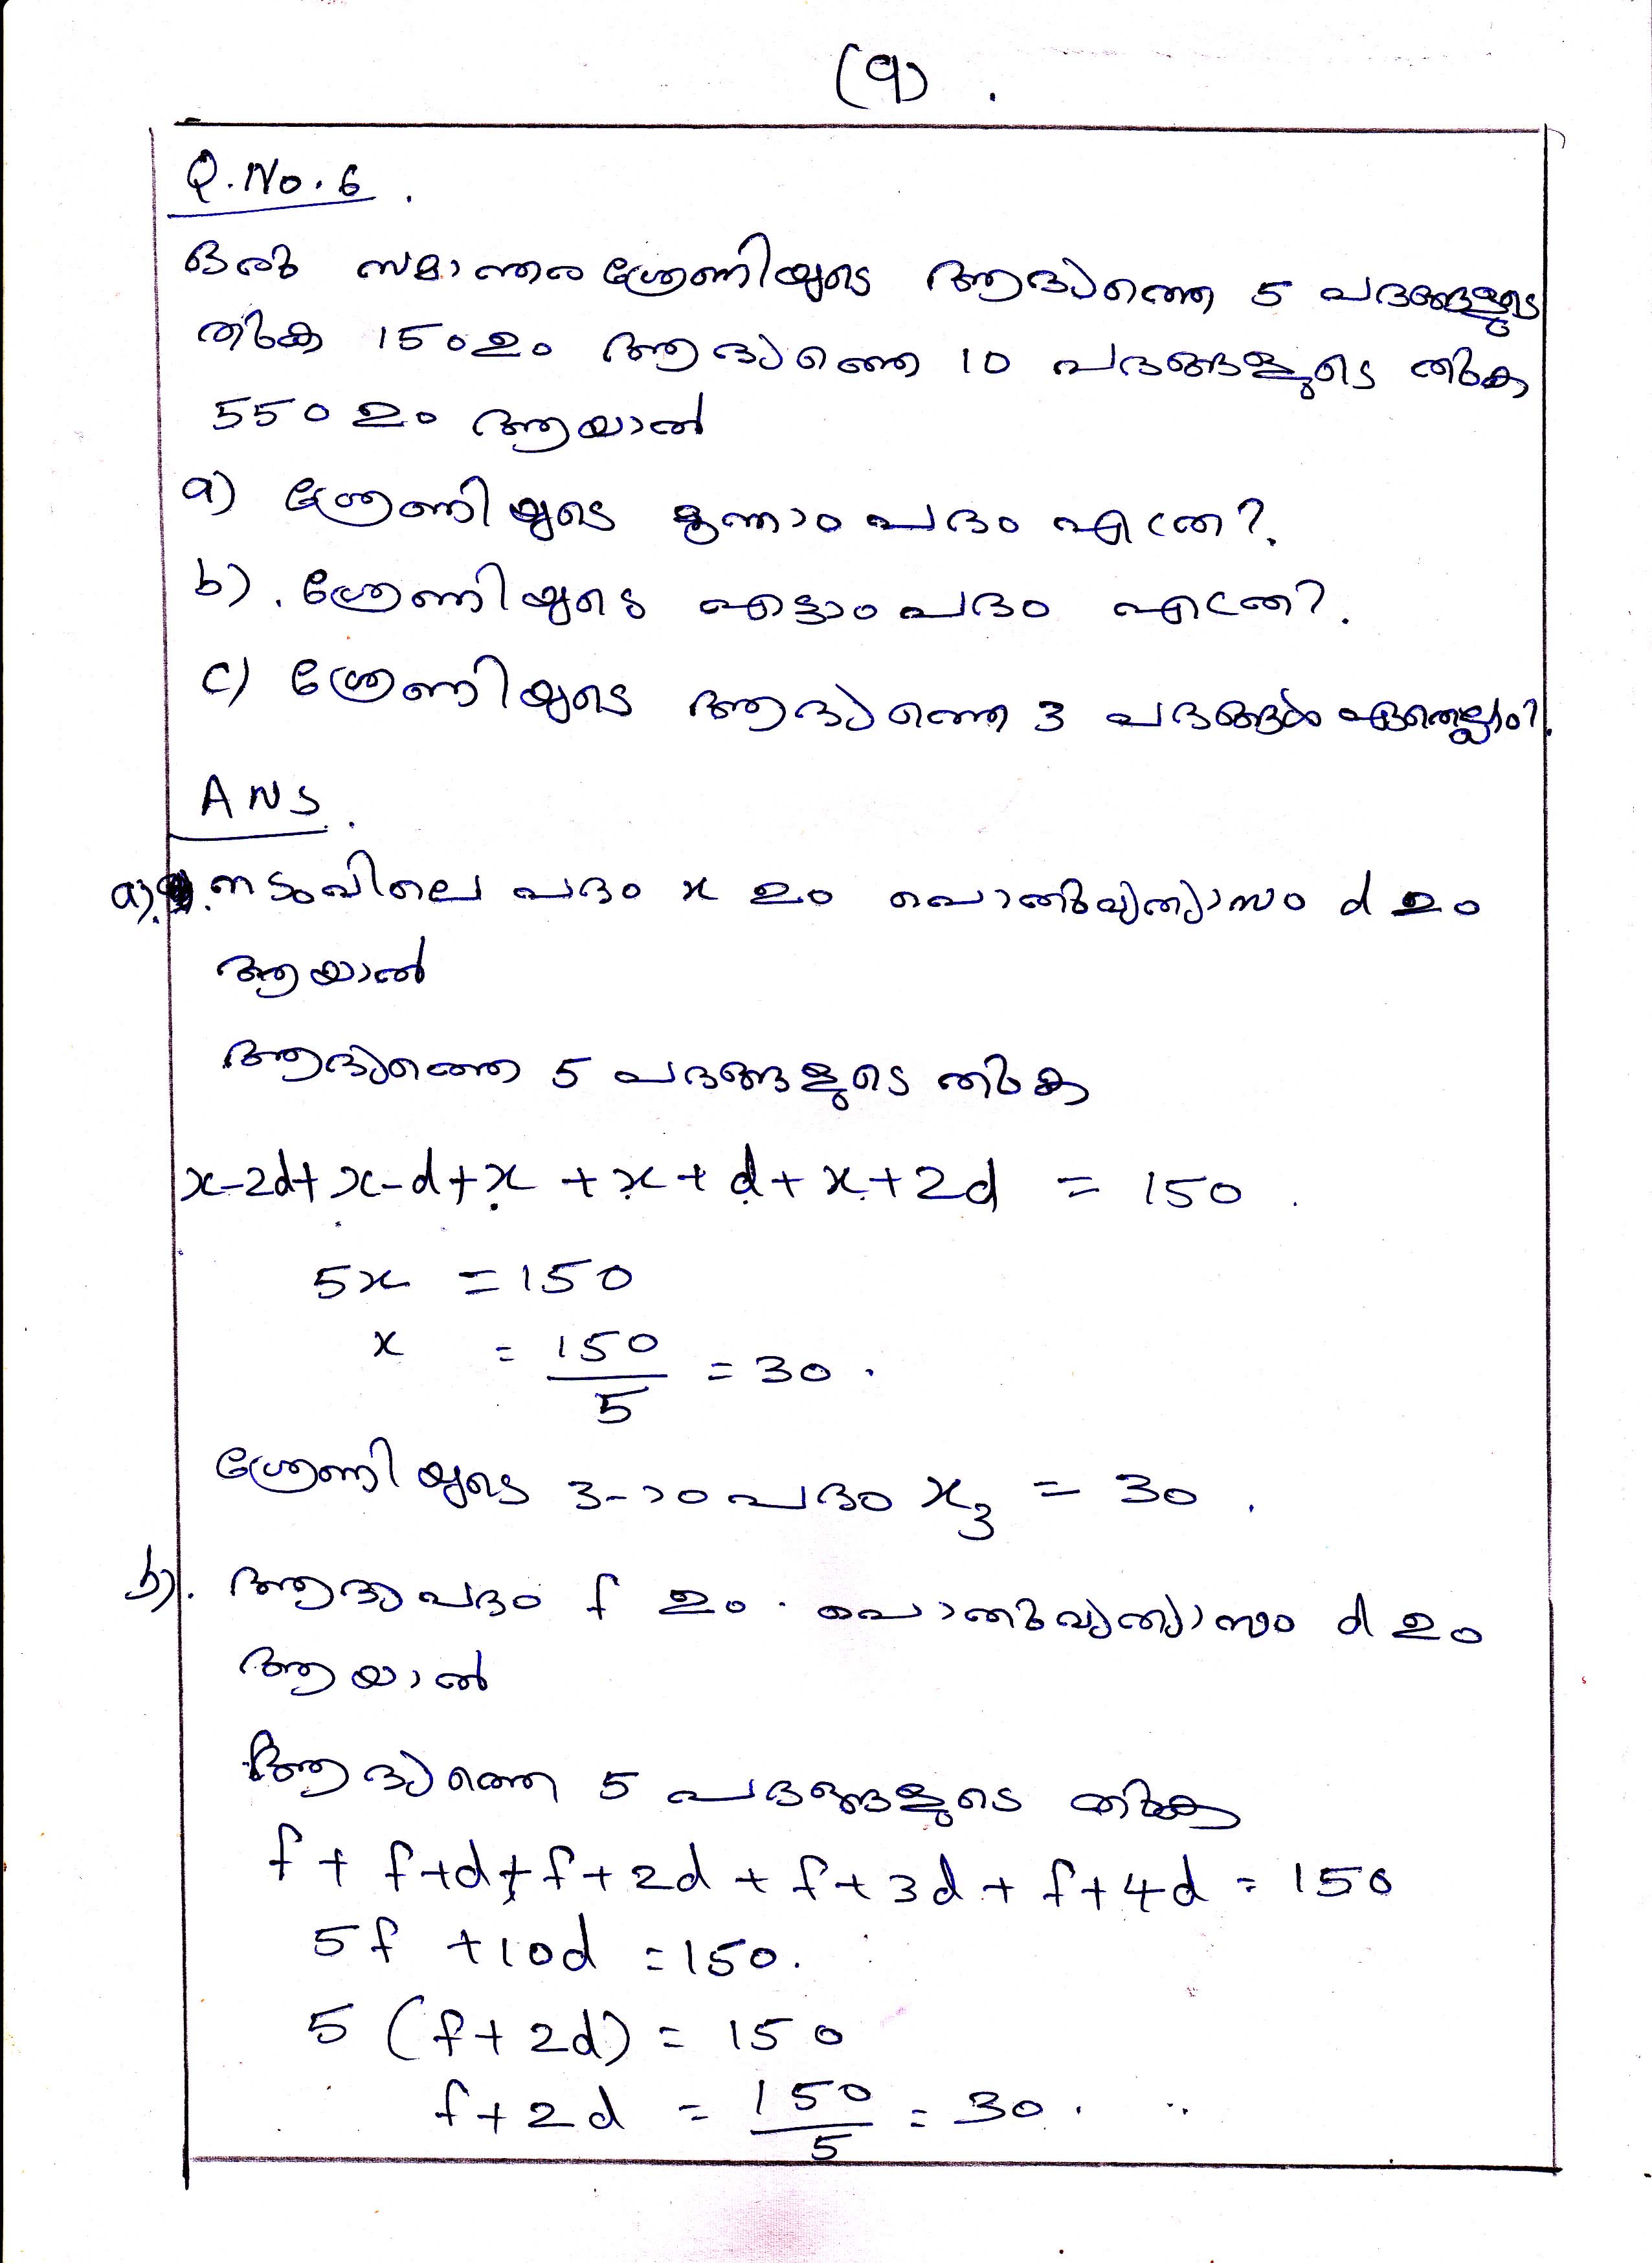 (9).
Q.No.6.
ഒരു സമാന്തര ശ്രേണിയുടെ ആദ്യത്തെ 5 പദങ്ങളുടെ
തുക 150 ഉം ആദ്യത്തെ 10 പദങ്ങളുടെ തുക
550 ഉം ആയാൽ
a) ശ്രേണിയുടെ മൂന്നാം പദം എത്ര?.
b). ശ്രേണിയുടെ എട്ടാം പദം എത്ര?.
c) ശ്രേണിയുടെ ആദ്യത്തെ 3 പദങ്ങൾ ഏതെല്ലാം?.
ANS.
a). നടുവിലെ പദം x ഉം പൊതുവ്യത്യാസം d ഉം
ആയാൽ
ആദ്യത്തെ 5 പദങ്ങളുടെ തുക
x-2d+x-d+x+x+d+x+2d = 150.
5x = 150
x = 150/5 = 30.
ശ്രേണിയുടെ 3-ാം പദം x₃ = 30.
b). ആദ്യപദം f ഉം പൊതുവ്യത്യാസം d ഉം
ആയാൽ
ആദ്യത്തെ 5 പദങ്ങളുടെ തുക
f + f+d+f+2d+f+3d+f+4d = 150
5f +10d =150.
5 (f+2d) = 150
f+2d = 150/5 = 30.